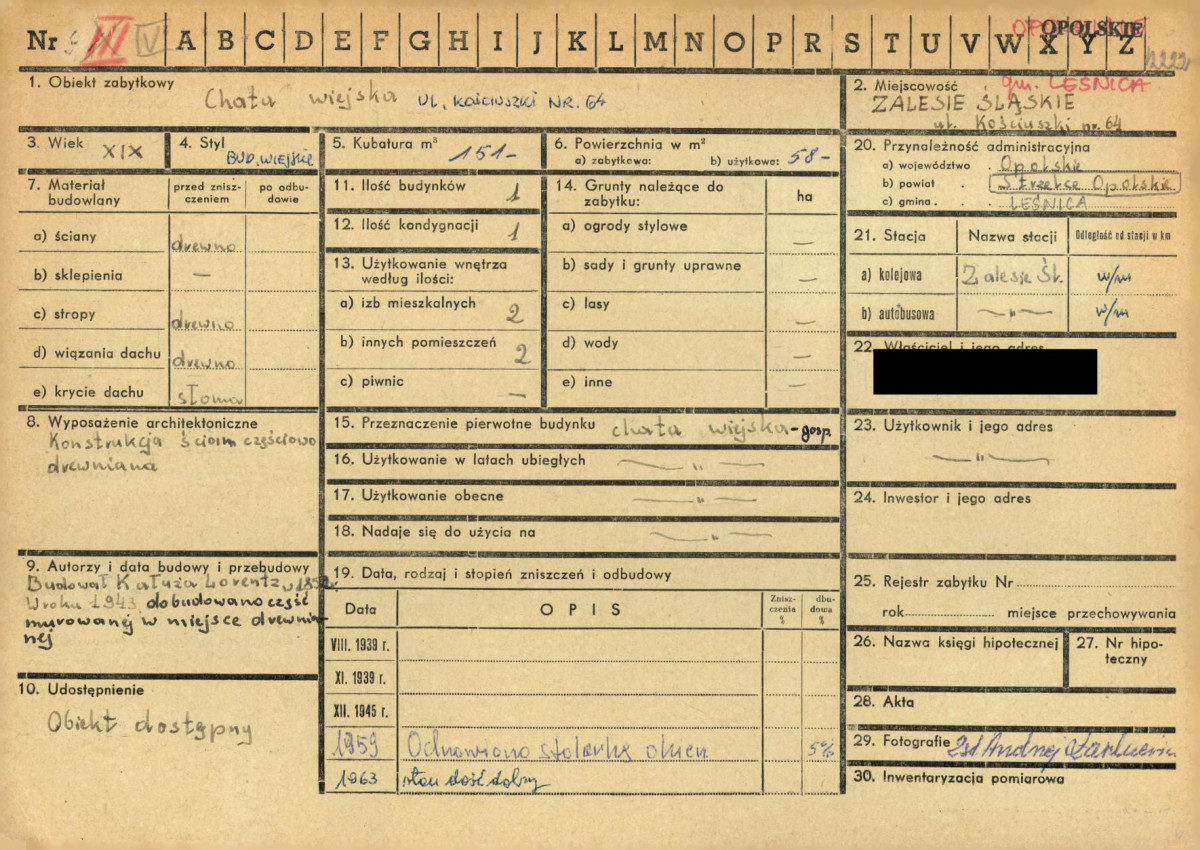 Nr III V A B C D E F G H I J K L M N O P R S T U V W X Y Z
OPOLSKIE
2222
1. Obiekt zabytkowy
Chata wiejska UL. KOŚCIUSZKI NR. 64
2. Miejscowość gm. LEŚNICA
ZALESIE ŚLĄSKIE
ul. Kościuszki nr. 64
3. Wiek XIX
4. Styl BUD. WIEJSKIE
5. Kubatura m³ 151-
6. Powierzchnia w m²
a) zabytkowa: b) użytkowe: 58-
20. Przynależność administracyjna
a) województwo Opolskie
b) powiat Strzelce Opolskie
c) gmina LEŚNICA
7. Materiał budowlany
przed znisz-
czeniem
po odbu-
dowie
a) ściany drewno
b) sklepienia —
c) stropy drewno
d) wiązania dachu drewno
e) krycie dachu słoma
11. Ilość budynków 1
12. Ilość kondygnacji 1
13. Użytkowanie wnętrza
według ilości:
a) izb mieszkalnych 2
b) innych pomieszczeń 2
c) piwnic —
14. Grunty należące do
zabytku:
ha
a) ogrody stylowe —
b) sady i grunty uprawne —
c) lasy —
d) wody —
e) inne —
21. Stacja Nazwa stacji Odległość od stacji w km
a) kolejowa Zalesie Śl. w/m
b) autobusowa —"— w/m
22. Właściciel i jego adres
8. Wyposażenie architektoniczne
Konstrukcja ścian częściowo
drewniana
15. Przeznaczenie pierwotne budynku chata wiejska-gosp.
16. Użytkowanie w latach ubiegłych —"—
17. Użytkowanie obecne —"—
18. Nadaje się do użycia na —"—
23. Użytkownik i jego adres
—"—
24. Inwestor i jego adres
9. Autorzy i data budowy i przebudowy
Budował Kałuża Lorentz
W roku 1943 dobudowano część
murowanej w miejsce drewnia-
nej
10. Udostępnienie
Obiekt dostępny
19. Data, rodzaj i stopień zniszczeń i odbudowy
Data OPIS
Znisz-
czenia
%
dbu-
dowa
%
VIII. 1939 r.
XI. 1939 r.
XII. 1945 r.
1959 Odnowiono stolarkę okien 5%
1963 stan dość dobry
25. Rejestr zabytku Nr
rok miejsce przechowywania
26. Nazwa księgi hipotecznej
27. Nr hipo-
teczny
28. Akta
29. Fotografie Andrzej
30. Inwentaryzacja pomiarowa